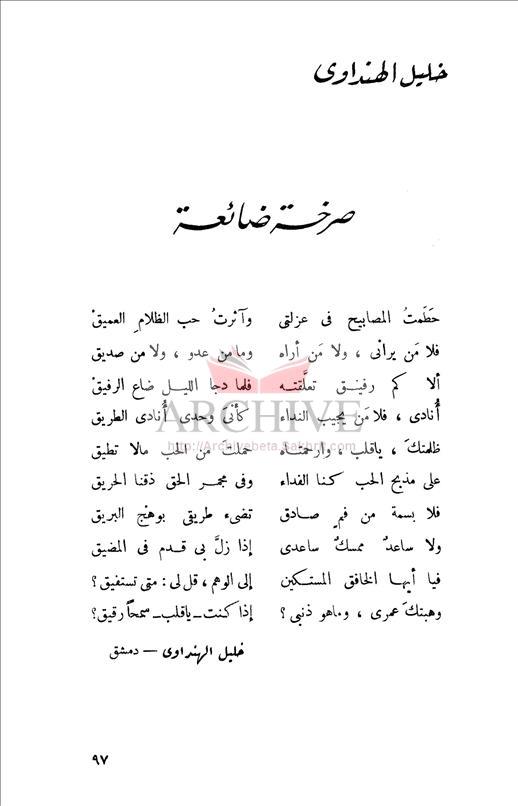 خليل الهنداوى
صرخة ضائعة
حَطَمتُ المصابيح فى عزلتى وآثرتُ حب الظلام العميقْ
فلا مَن يرانى ، ولا مَن أراه وما من عدو ، ولا من صديق
ألا كم رفيـق تعلَّقتـه فلما دجا الليـل ضاع الرفيقْ
أُنادى ، فلا مَن يجيب النداء كأنى وحدى أُنادى الطريق
ظلمتكَ ، ياقلب ، وارحمتاه حملتَ من الحب مالا تطيق
على مذبح الحب كـنا الفداء وفى مجمر الحق ذقنا الحريق
فلا بسمة من فمٍ صـادق تضىء طريقى بوهْج البريق
ولا ساعدٌ ممسكٌ ساعدى إذا زلَّ بى قـدم فى المضيق
فيا أيها الخافق المستـكين إلى الوهم ، قل لى : متى تستفيق ؟
وهبتكَ عمرى ، وماهو ذنبى ؟ إذا كنت ــ ياقلب ــ سمحاً رقيق ؟
خليل الهنداوى — دمشق
ARCHIVE
http://Archivebeta.Sakhrit.com
٩٧